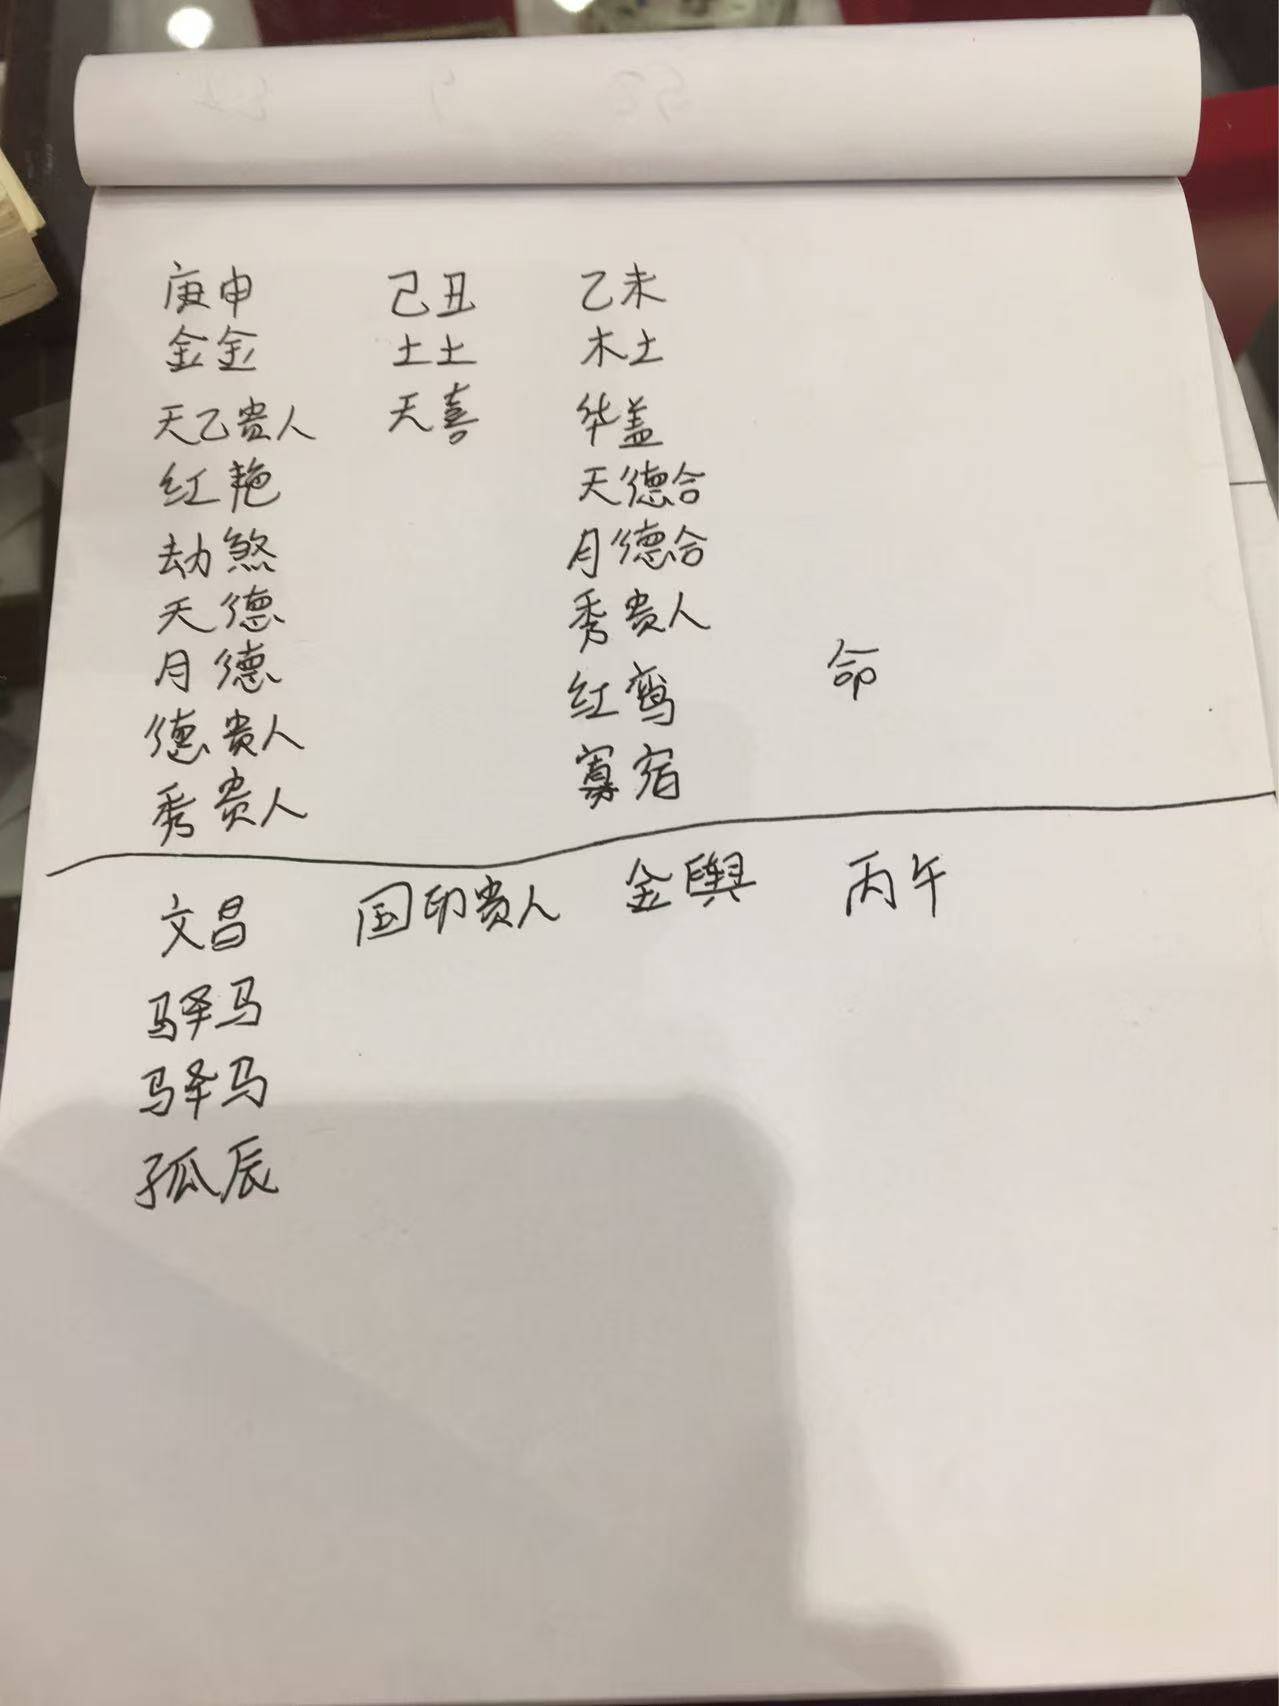 庚申 己丑 乙未
金金 土土 木土
天乙贵人 天喜 华盖
红艳 天德合
劫煞 月德合
天德 秀贵人
月德 红鸾 命
德贵人 寡宿
秀贵人
文昌 国印贵人 金舆 丙午
驿马
驿马
孤辰